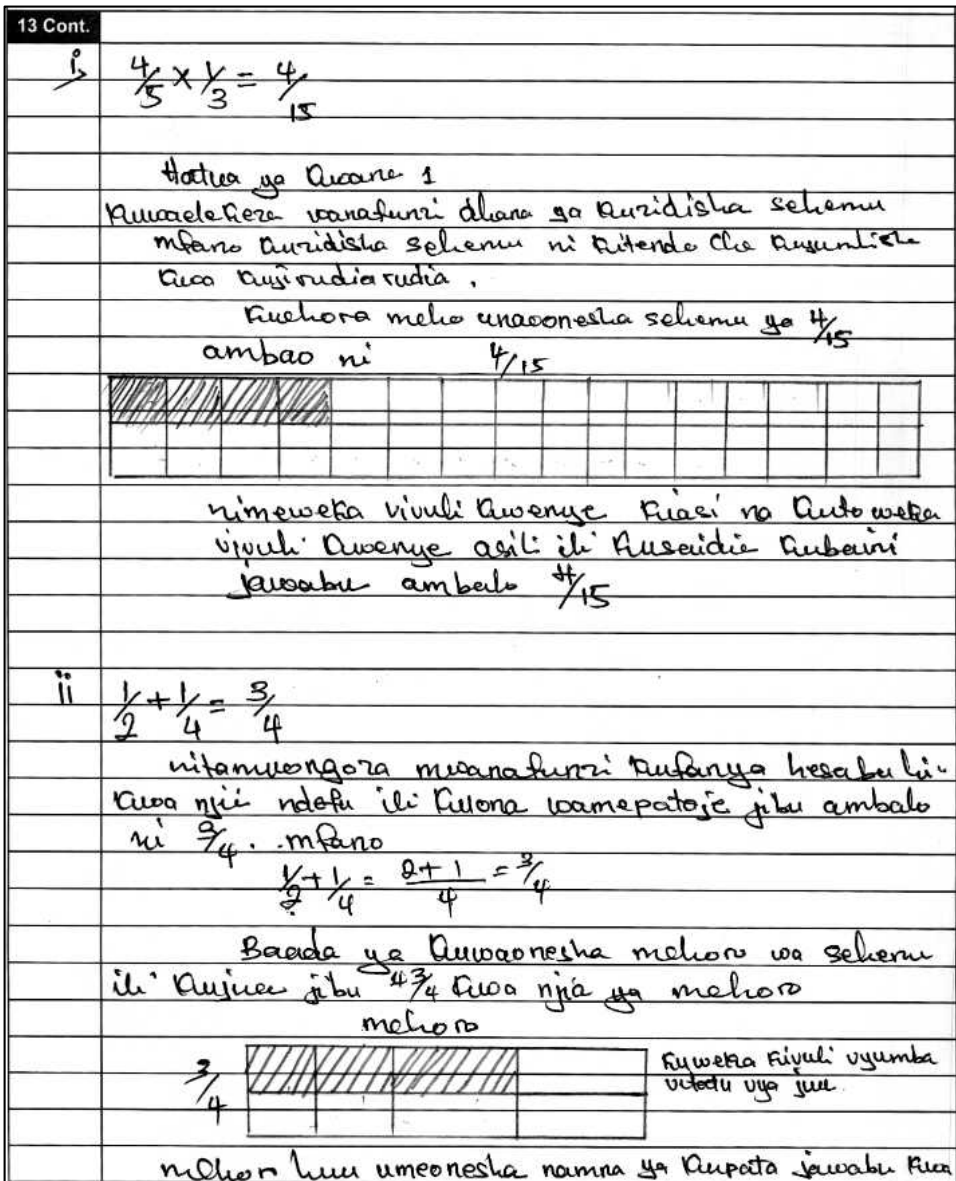 13 Cont.
i, 4/5 × 1/3 = 4/15
Hatua ya Kwanz 1
Kuwaelekeza wanafunzi dhana ya Kuzidisha sehemu
mfano Kuzidisha sehemu ni Kitendo cha Kujumlisha
Kwa Kujirudiarudia.
Kuchora mcho unaoonesha sehemu ya 4/15
ambao ni 4/15
nimeweka vivuli Kwenye Kiasi na Kutoweka
vivuli Kwenye asili ili Kusaidia Kubaini
jawabu ambalo 4/15
ii 1/2 + 1/4 = 3/4
nitamuongoza mwanafunzi Kufanya hesabu hii
Kwa njii ndefu ili Kuona wamepataje jibu ambalo
ni 3/4. mfano
1/2 + 1/4 = 2+1/4 = 3/4
Baada ya Kuwaonesha mchoro wa sehemu
ili Kujua jibu 3/4 Kwa njia ya mchoro
mchoro
3/4
Kuweka Kivuli vyumba
vitatu vya juu.
mchoro huu umeonesha namna ya Kupata jawabu Kwa